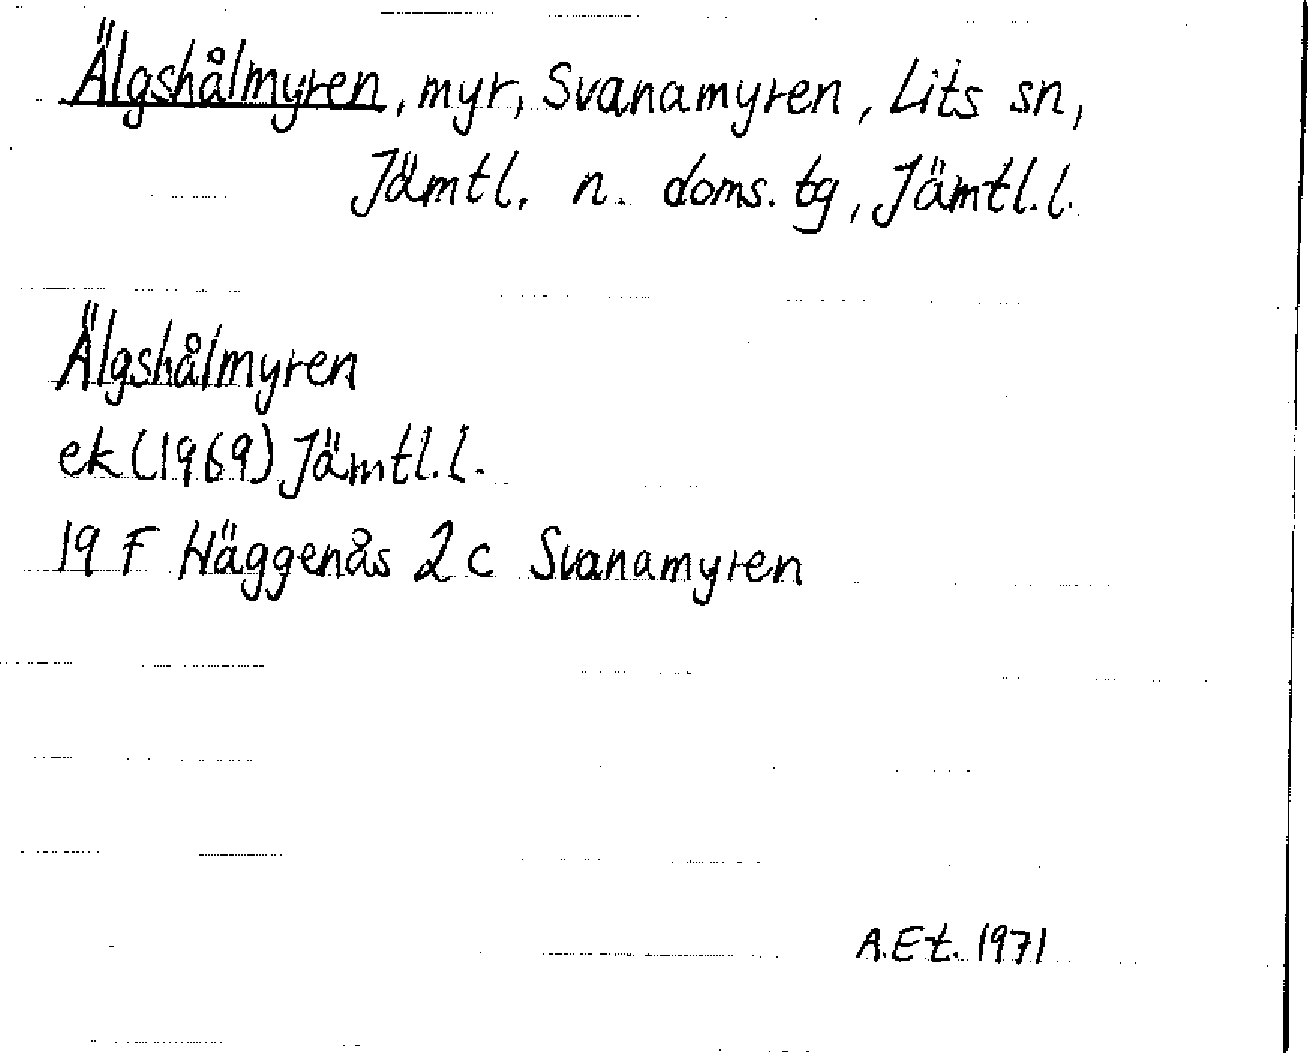 Älgshålmyren, myr, Svanamyren, Lits sn,
Jämtl. n. doms. tg, Jämtl. l.
Älgshålmyren
ek (1969) Jämtl. l.
19 F Häggenås 2 c Svanamyren
A.Et. 1971